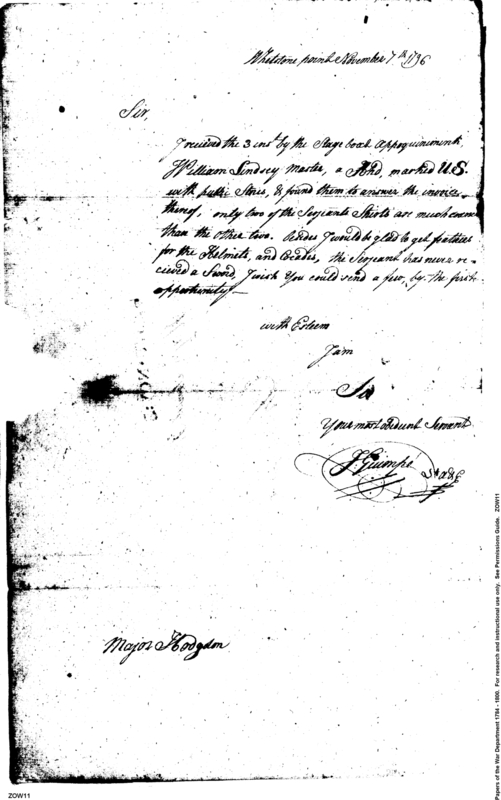 Whetstone point November 7.th 1796
Sir,
I recived the 3 inst by the Stage boat Appoquiniminck,
William Lindsey Master, a Hhd, marked U.S.
with public Stores, & found them to answer the invoice
thereof, only two of the Serjeants Shirts are much
than the other two. Besides I would be glad to get feathers
for the Helmets, and Besides, the Serjeant has never re-
cieved a Sword, I wish You could send a few, by the first
opportunity—
with Esteem
I am
Sir
Your most obedient Servant
Major Hodgdon
ZOW11
Papers of the War Department 1784 - 1800. For research and instructional use only. See Permissions Guide. ZOW11